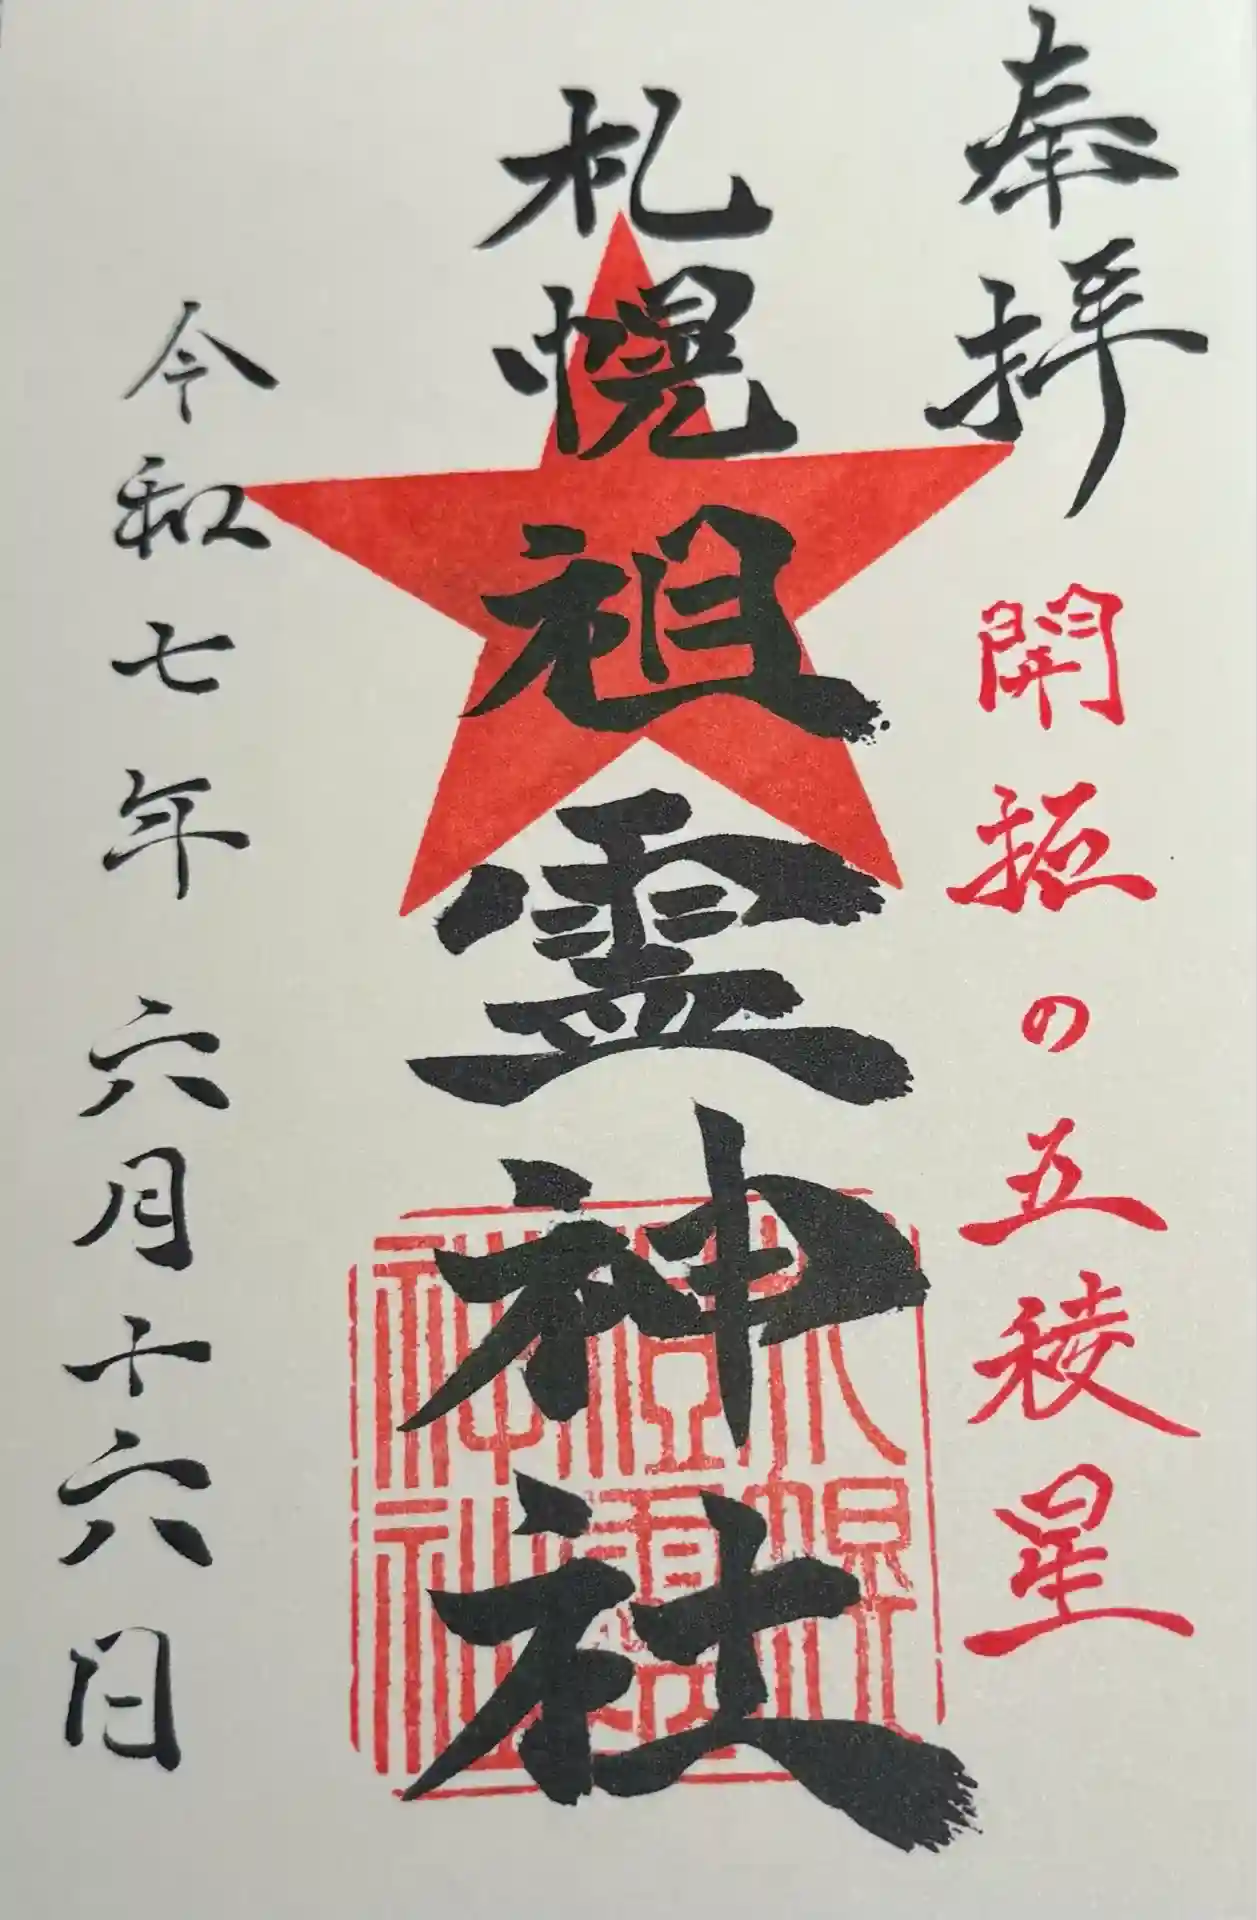 奉拝
開拓の五稜星
札幌祖霊神社
令和七年六月十六日
札幌
祖霊
神社